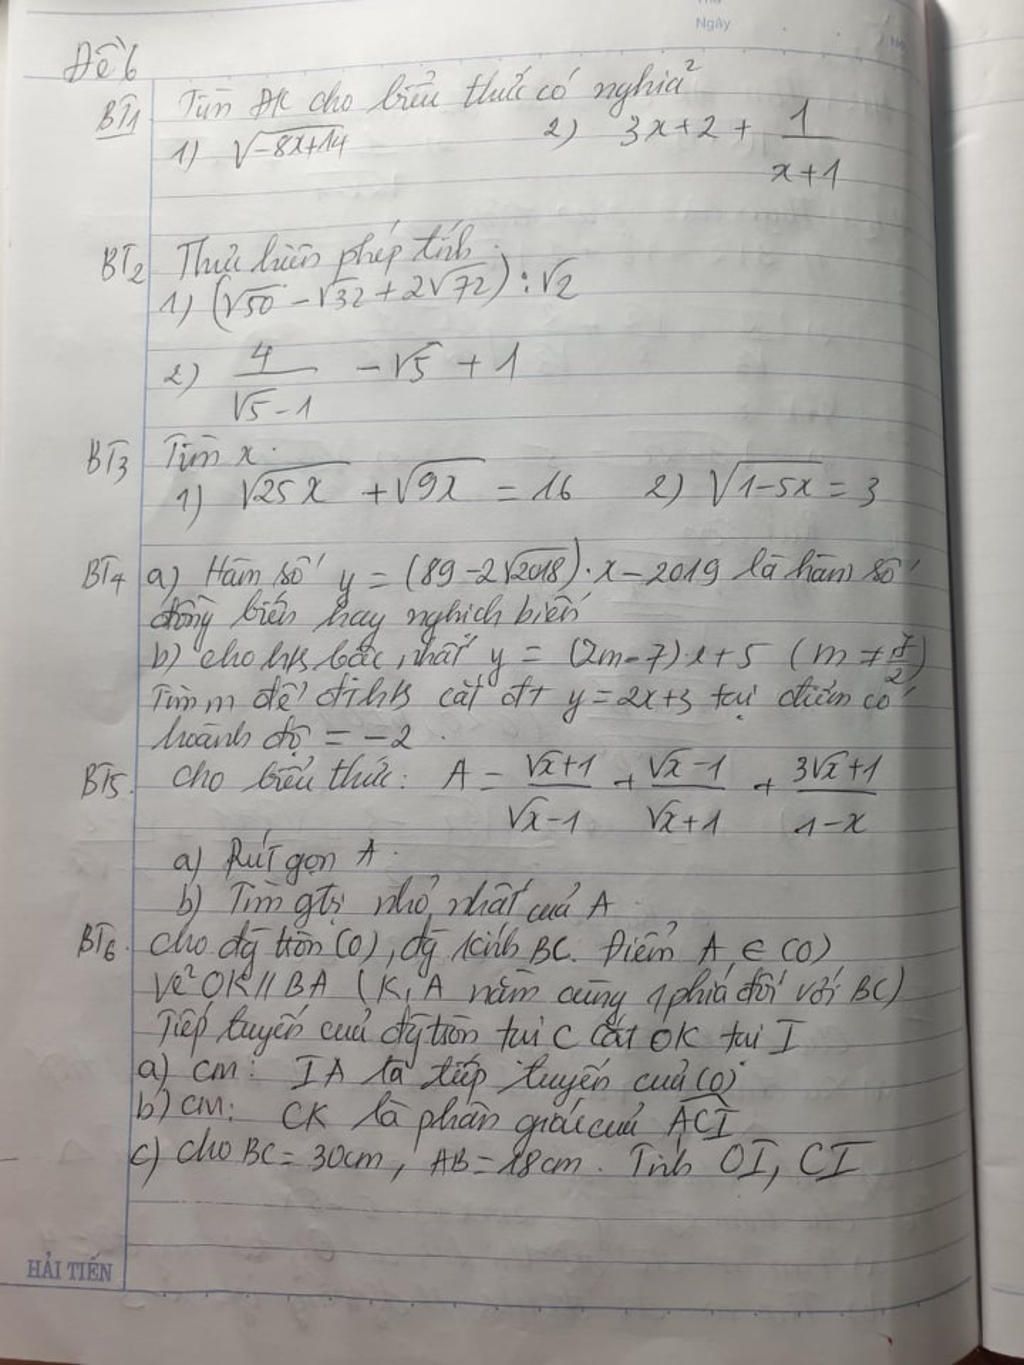 Ngày
Đề 6
BT1 Tìm ĐK cho biểu thức có nghĩa
1) √-8x+14 2) 3x+2 + 1/(x+1)
BT2 Thực hiện phép tính.
1) (√50 - √32 + 2√72) : √2
2) 4/(√5-1) - √5 + 1
BT3 Tìm x.
1) √25x + √9x = 16 2) √1-5x = 3
BT4 a) Hàm số y = (89-2√2018).x-2019 là hàm số
đồng biến hay nghịch biến
b) cho hs bậc nhất y = (2m-7).x+5 (m ≠ 7/2)
Tìm m để đths cắt đt y=2x+3 tại điểm có
hoành độ = -2.
BT5. Cho biểu thức: A = (√x+1)/(√x-1) + (√x-1)/(√x+1) + (3√x+1)/(1-x)
a) Rút gọn A.
b) Tìm gtrị nhỏ nhất của A
BT6. Cho đg tròn (O), đg kính BC. Điểm A ∈ (O)
Vẽ OK // BA (K, A nằm cùng 1 phía đối với BC)
Tiếp tuyến của đg tròn tại C cắt OK tại I
a) cm: IA là tiếp tuyến của (O)
b) cm: CK là phân giác của ACI
c) Cho BC = 30cm, AB = 18cm. Tính OI, CI
HẢI TIẾN